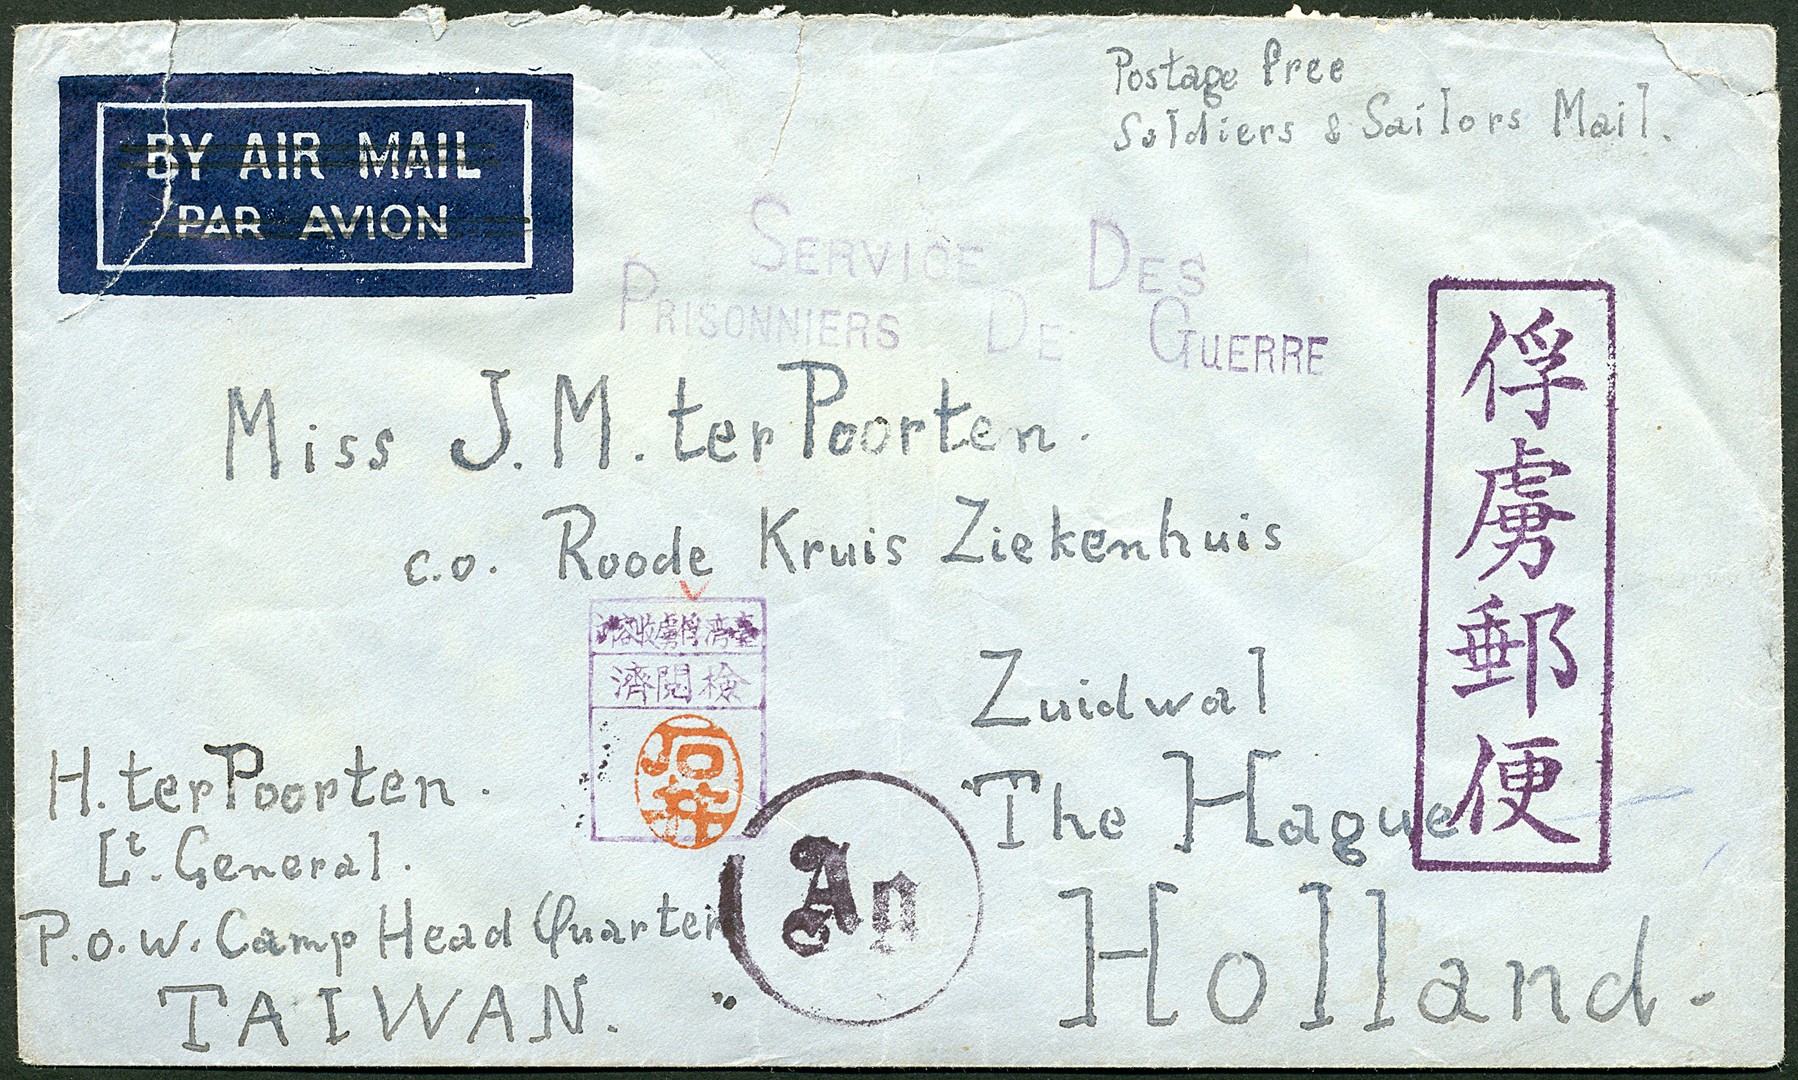 Postage free
Soldiers & Sailors Mail.
BY AIR MAIL
PAR AVION
SERVICE DES
PRISONNIERS DE GUERRE
俘虜郵便
Miss J. M. ter Poorten.
c.o. Roode Kruis Ziekenhuis
Zuidwal
The Hague
Holland.
臺湾俘虜收容所
檢閲濟
石井
Ag
H. ter Poorten.
Lt. General.
P.O.W. Camp Head Quarter
TAIWAN.